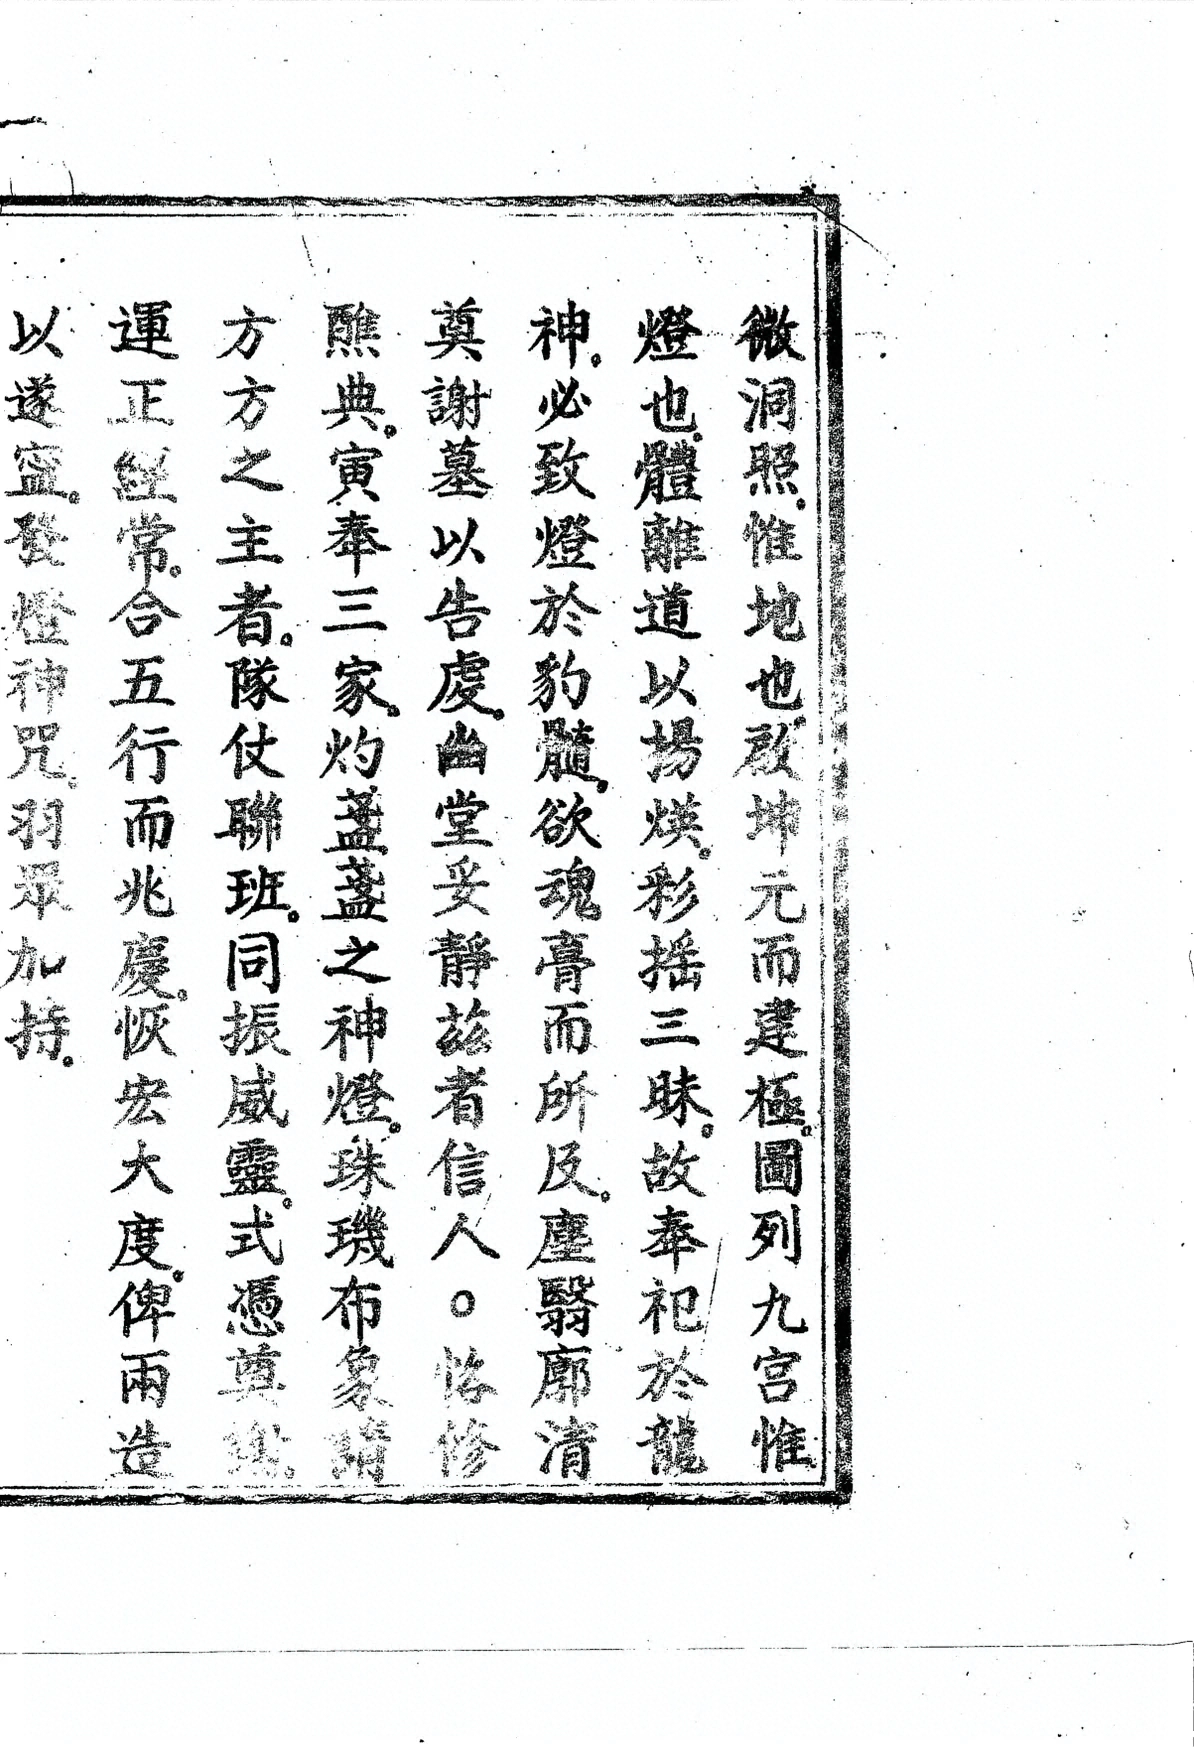 微洞照。惟地也。啟坤元而建極。圖列九宮惟
燈也。體離道以揚煐。彩搖三昧。故奉祀於龍
神。必致燈於豹髓。欲魂膏而所及。塵翳廓清
奠謝墓以告虔。幽堂妥靜茲者信人○恪修
醮典。寅奉三家。灼盞盞之神燈。珠璣布象請
方方之主者。隊仗聯班。同振威靈。式憑奠謝。
運正經常。合五行而兆慶。恢宏大度。俾兩造
以遂寧。發燈神咒。羽眾加持。